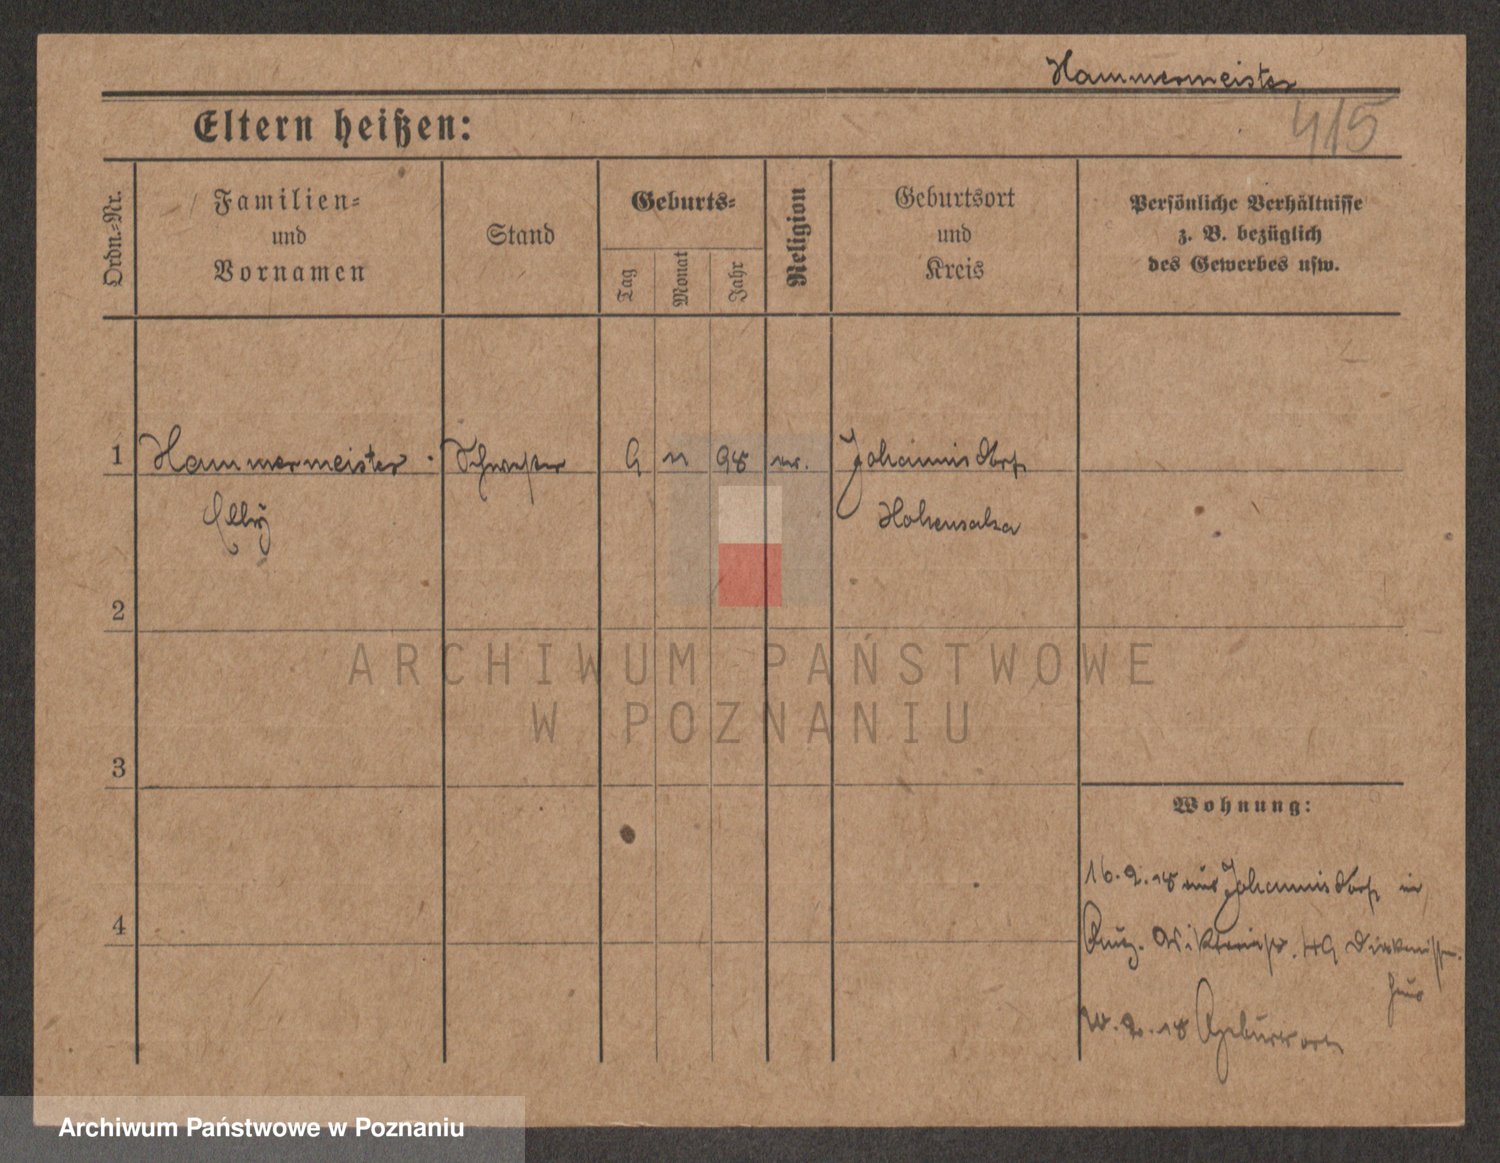 Hammermeister
415
Eltern heißen:
Ordn.-Nr.
Familien-
und
Vornamen
Stand
Geburts-
Tag
Monat
Jahr
Religion
Geburtsort
und
Kreis
Persönliche Verhältnisse
z. B. bezüglich
des Gewerbes usw.
1
Hammermeister Schwester 9 11 98 ev. Johannisdorf
Elly Hohensalza
2
3
4
Wohnung:
16.2.18 aus Johannisdorf in
49
2.18
ARCHIWUM PAŃSTWOWE
W POZNANIU
Archiwum Państwowe w Poznaniu